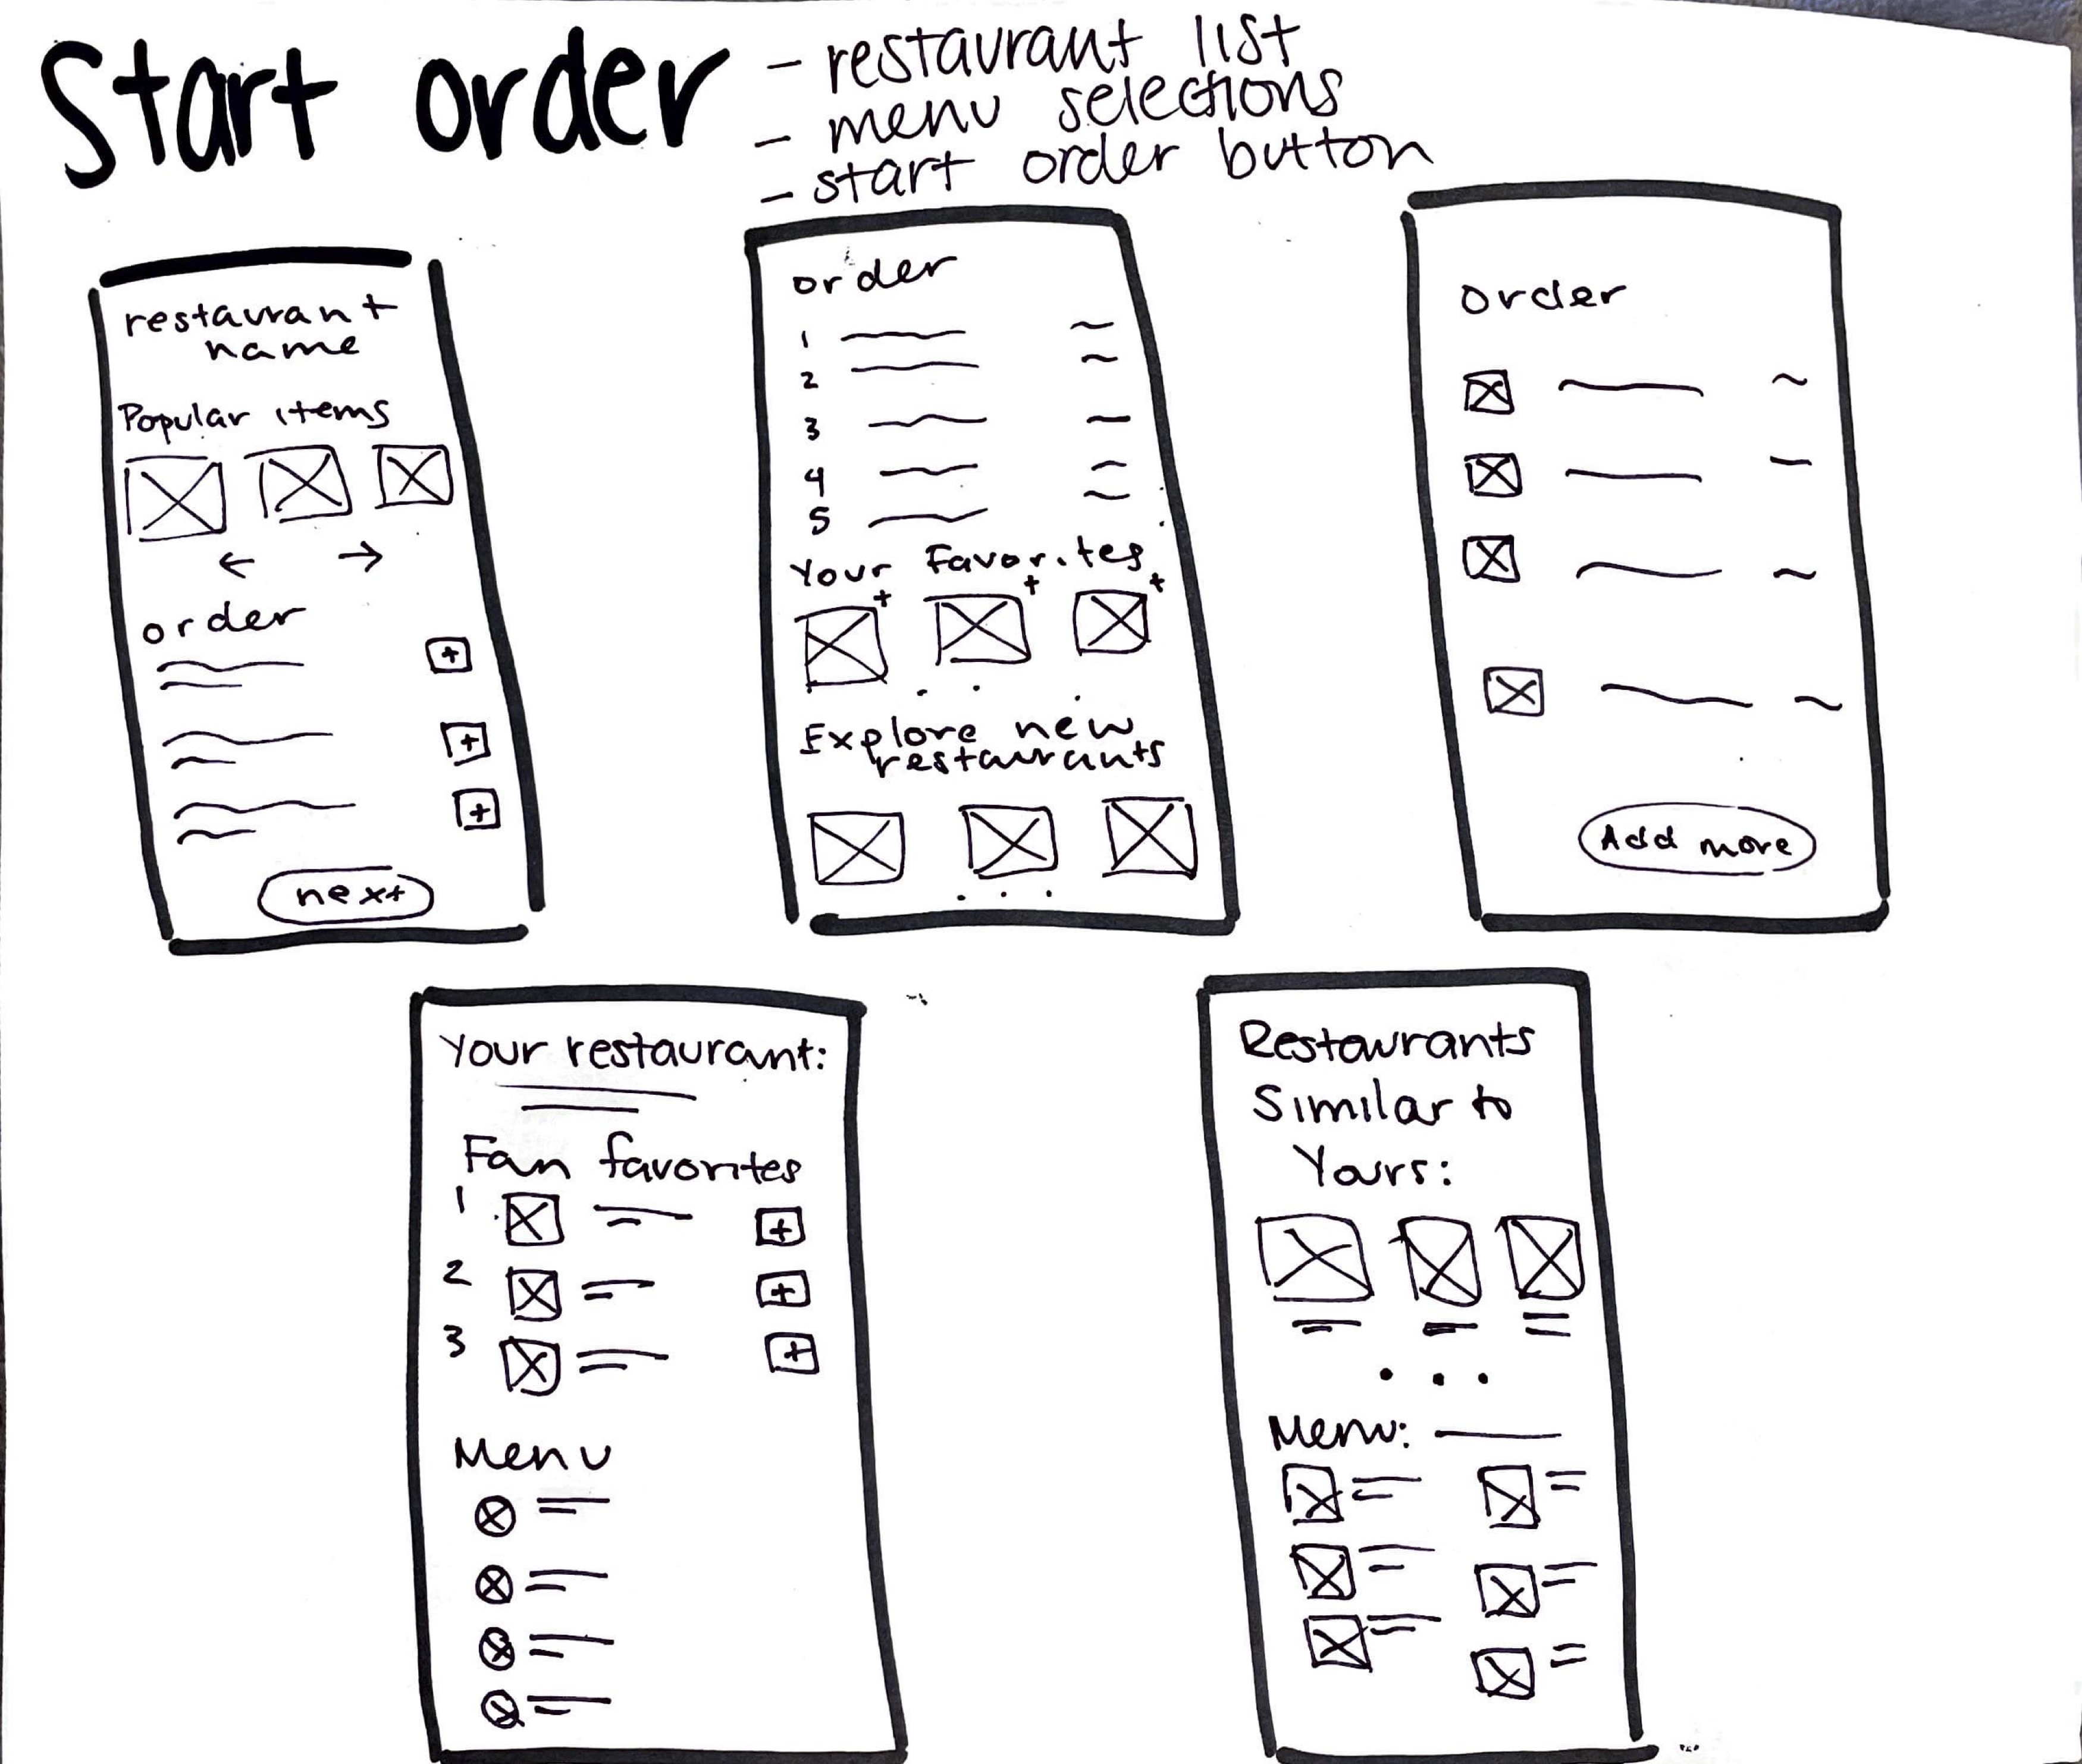 Start order
- restaurant list
- menu selections
- start order button
restaurant
name
Popular items
← →
order
+
+
+
next
order
1
2
3
4
5
Your Favorites
+ + +
Explore new
restaurants
order
Add more
Your restaurant:
Fan favorites
1 +
2 +
3 +
Menu
Restaurants
Similar to
Yours:
Menu: